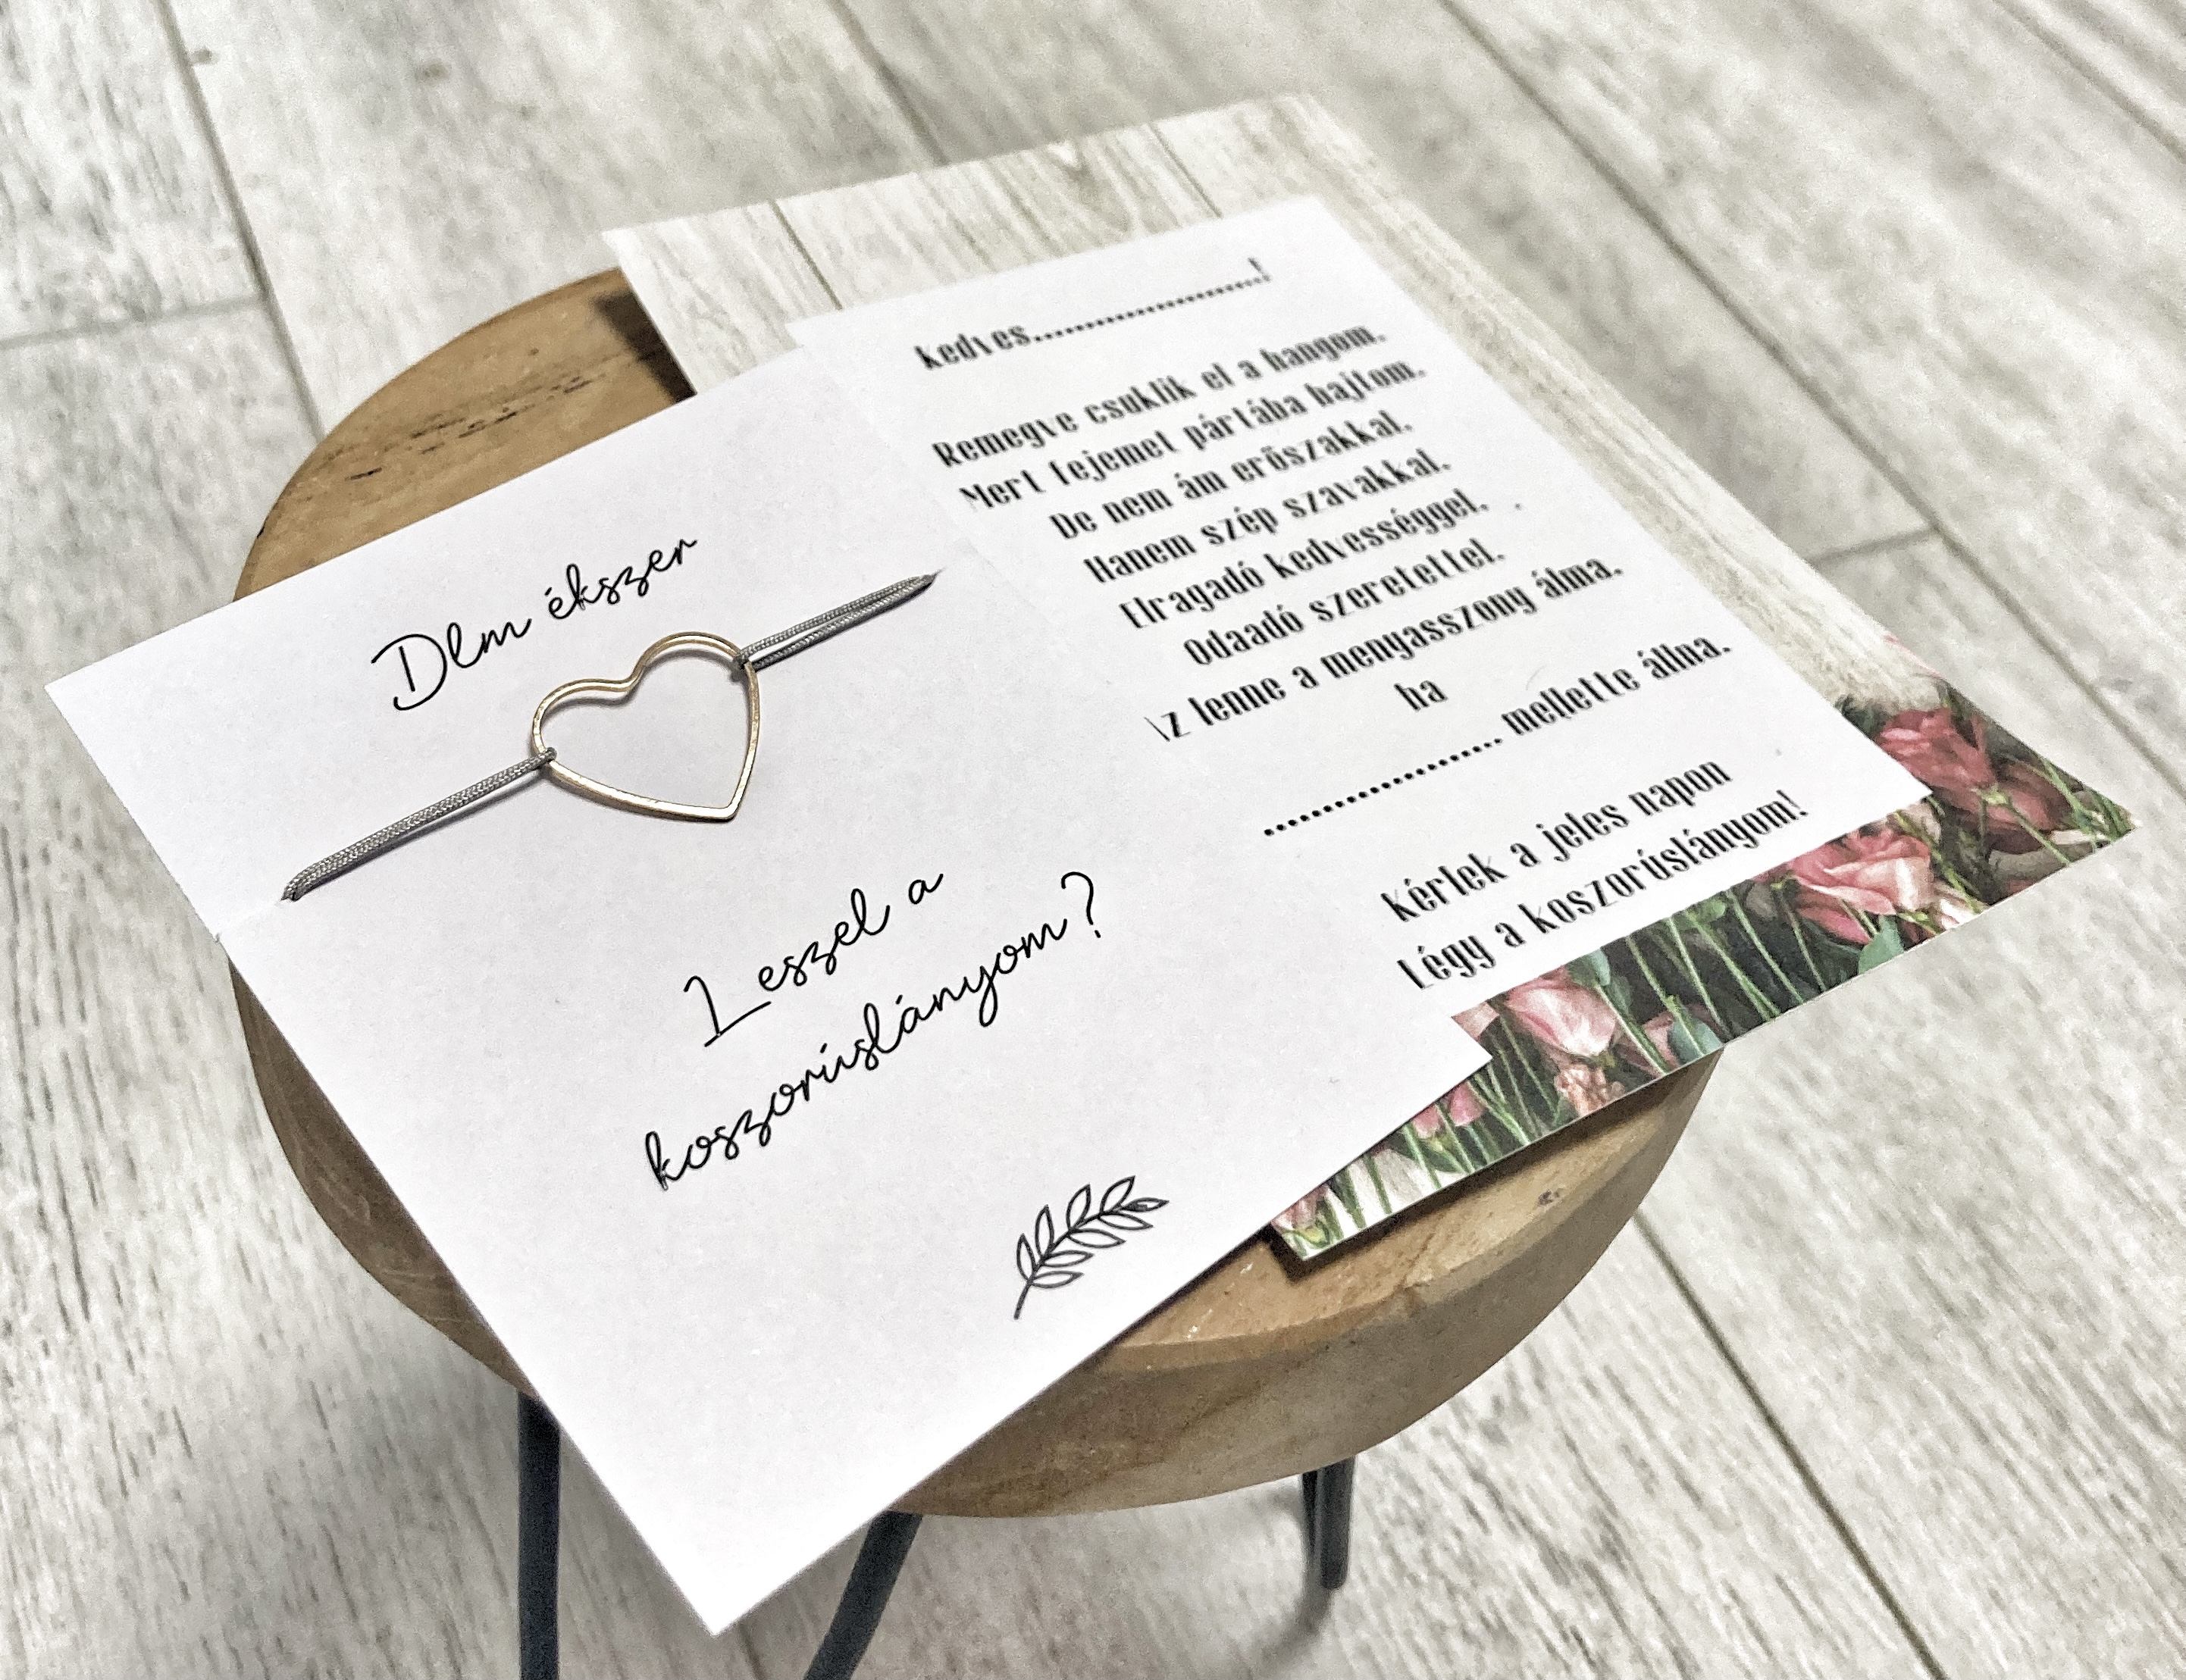 Dlm ékszer
Leszel a
koszorúslányom?
Kedves..............................!
Remegve csuklik el a hangom.
Mert fejemet pártába hajtom.
De nem ám erőszakkal.
Hanem szép szavakkal.
Elragadó kedvességgel.
Odaadó szeretettel.
Az lenne a menyasszony álma.
ha
........................ mellette állna.
Kérlek a jeles napon
Légy a koszorúslányom!